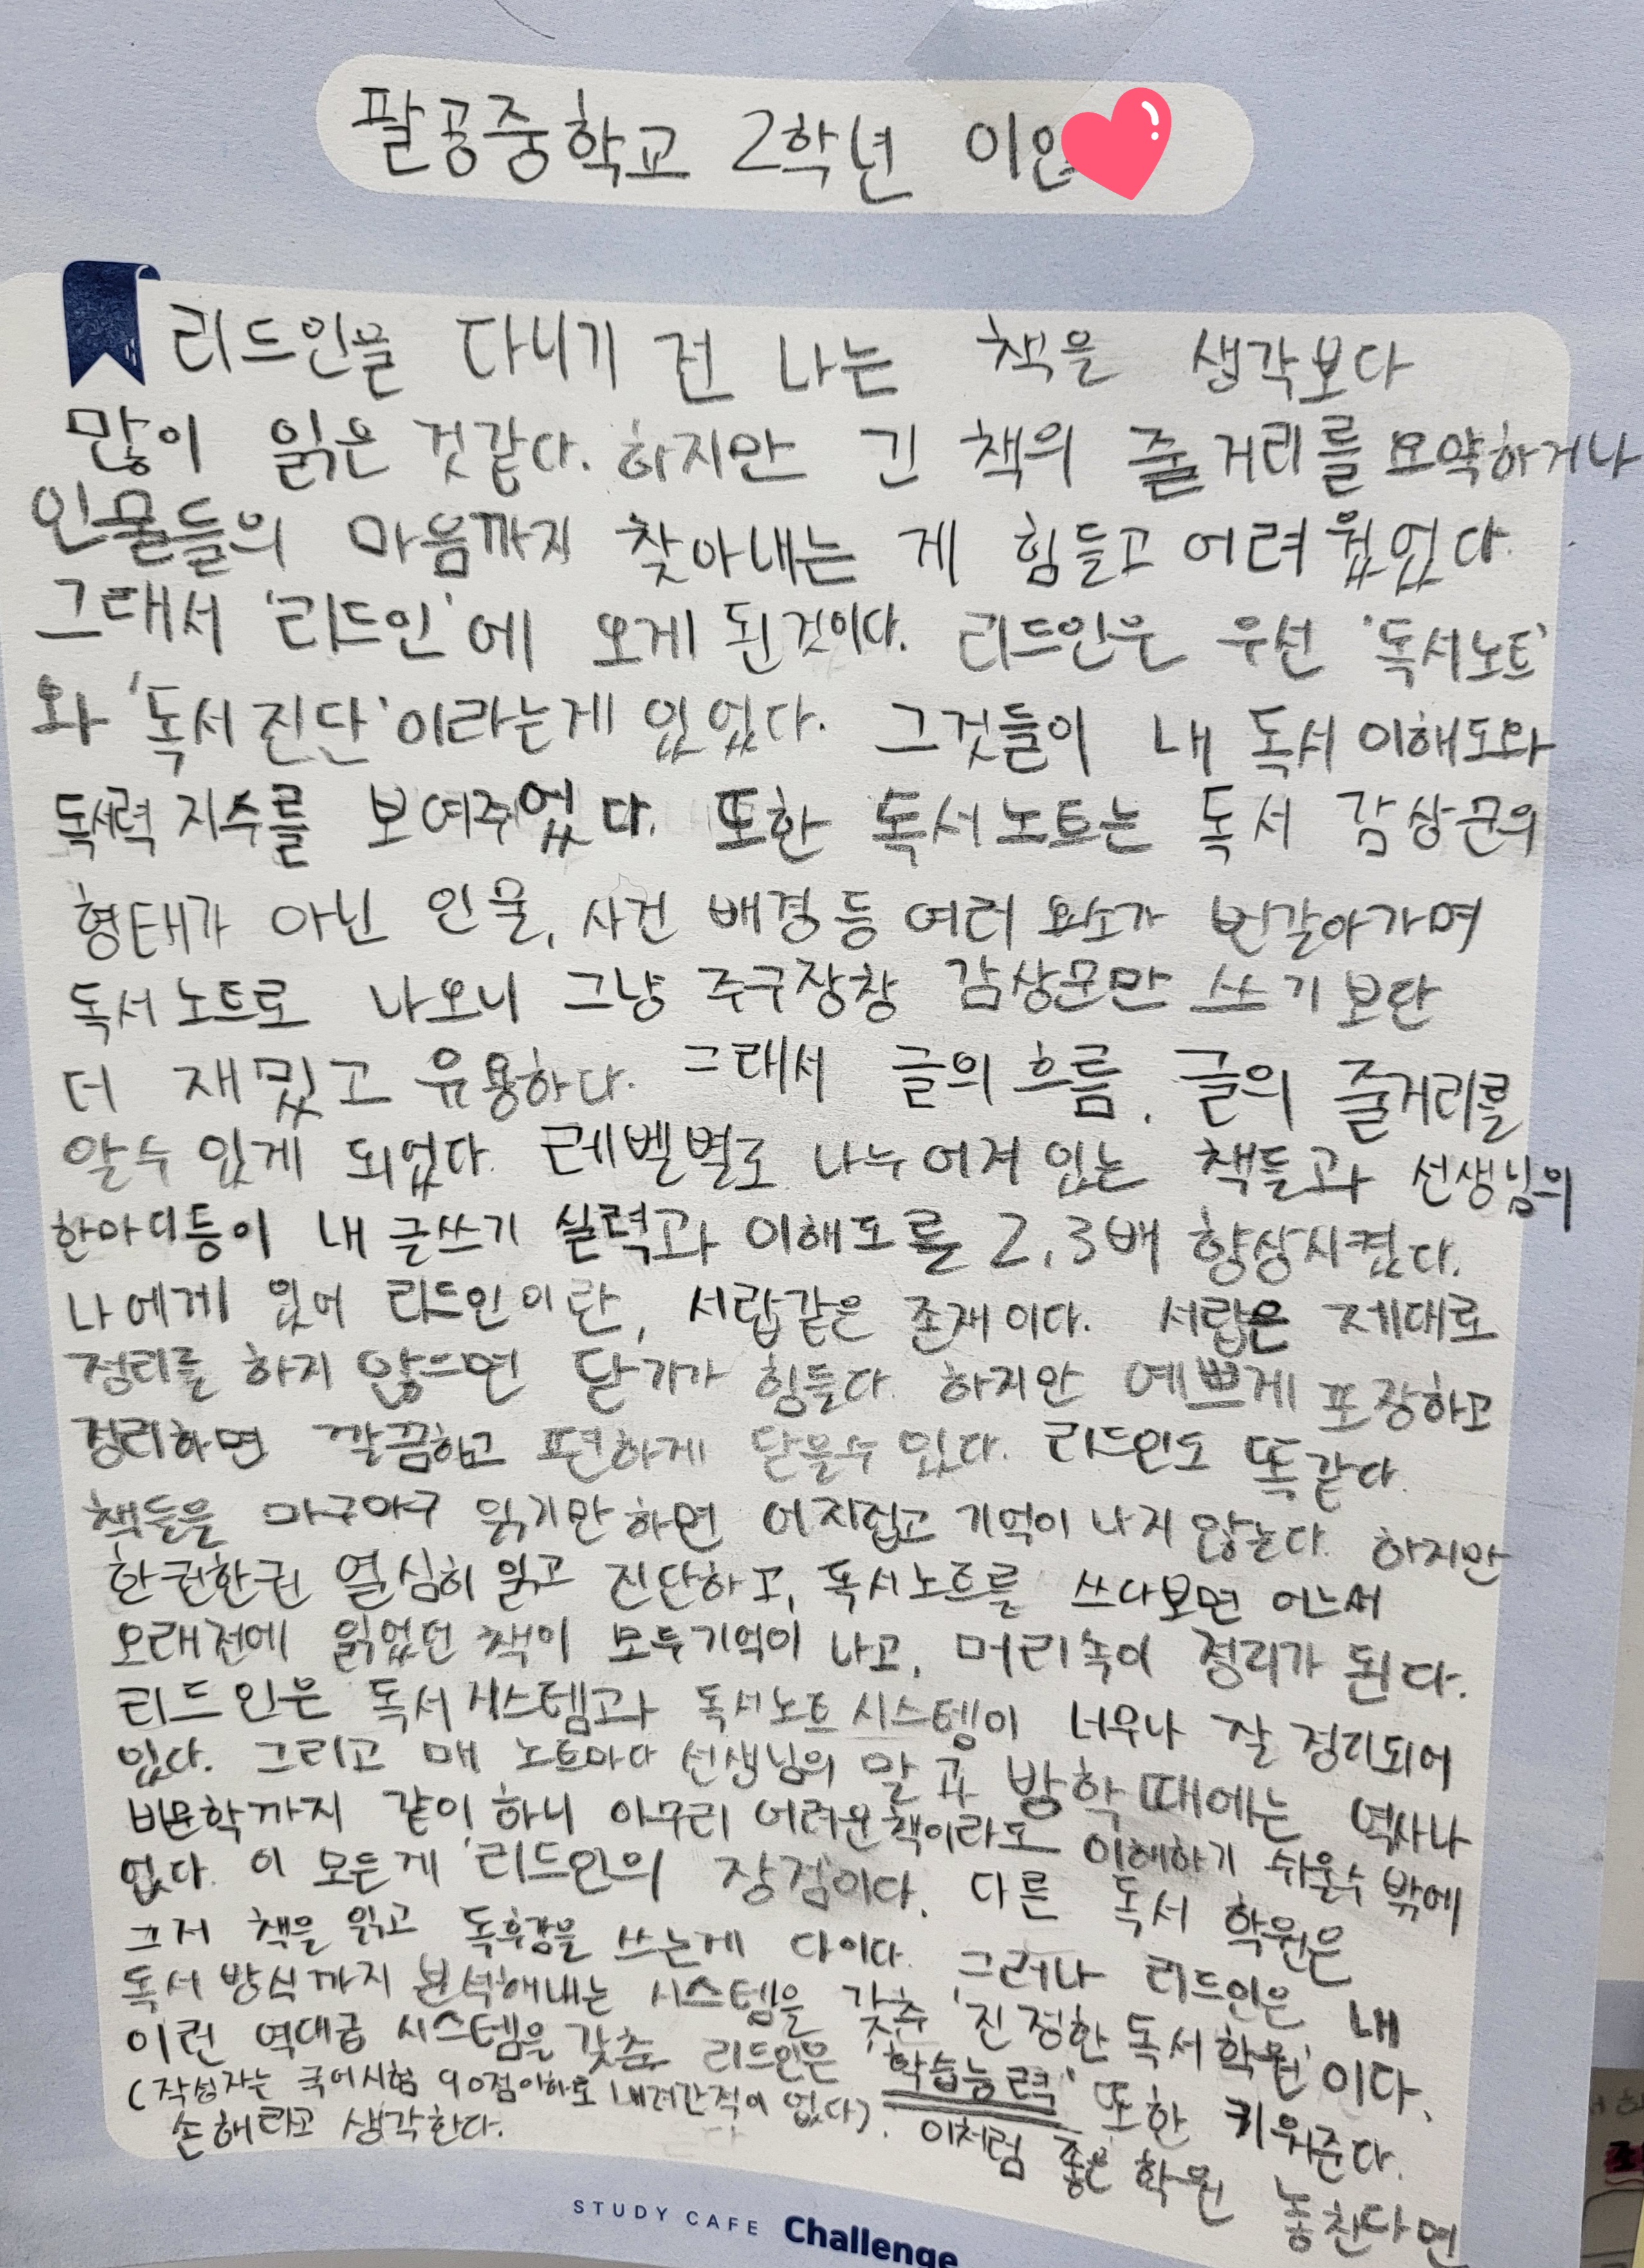 팔공중학교 2학년 이
리드인을 다니기 전 나는 책을 생각보다
많이 읽은 것같다. 하지만 긴 책의 줄거리를 요약하거나
인물들의 마음까지 찾아내는 게 힘들고 어려웠었다.
그래서 '리드인'에 오게 된것이다. 리드인은 우선 '독서노트'
와 '독서진단'이라는게 있었다. 그것들이 내 독서 이해도와
독서력 지수를 보여주었다. 또한 독서노트는 독서 감상문의
형태가 아닌 인물, 사건 배경등 여러 요소가 번갈아가며
독서노트로 나오니 그냥 주구장창 감상문만 쓰기보단
더 재밌고 유용하다. 그래서 글의 흐름, 글의 줄거리를
알수 있게 되었다. 레벨별로 나누어져 있는 책들과 선생님의
한마디등이 내 글쓰기 실력과 이해도를 2,3배 향상시켰다.
나에게 있어 리드인이란, 서랍같은 존재이다. 서랍은 제대로
정리를 하지 않으면 닫기가 힘들다. 하지만 예쁘게 포장하고
정리하면 깔끔하고 편하게 닫을수 있다. 리드인도 똑같다.
책들을 마구마구 읽기만 하면 어지럽고 기억이 나지 않는다. 하지만
한권한권 열심히 읽고 진단하고, 독서노트를 쓰다보면 어느새
오래전에 읽었던 책이 모두 기억이 나고, 머리속이 정리가 된다.
리드인은 독서시스템과 독서노트 시스템이 너무나 잘 정리되어
있다. 그리고 매 노트마다 선생님의 말과 방학 때에는 역사나
비문학까지 같이 하니 아무리 어려운책이라도 이해하기 쉬울수 밖에
없다. 이 모든게 '리드인의 장점이다. 다른 독서 학원은
그저 책을 읽고 독후감을 쓰는게 다이다. 그러나 리드인은 내
독서 방식까지 분석해내는 시스템을 갖춘 '진정한 독서학원'이다.
이런 역대급 시스템을 갖춘 리드인은 '학습능력' 또한 키워준다.
(작성자는 국어시험 90점이하로 내려간적이 없다). 이처럼 좋은 학원 놓친다면
손해라고 생각한다.
STUDY CAFE Challenge